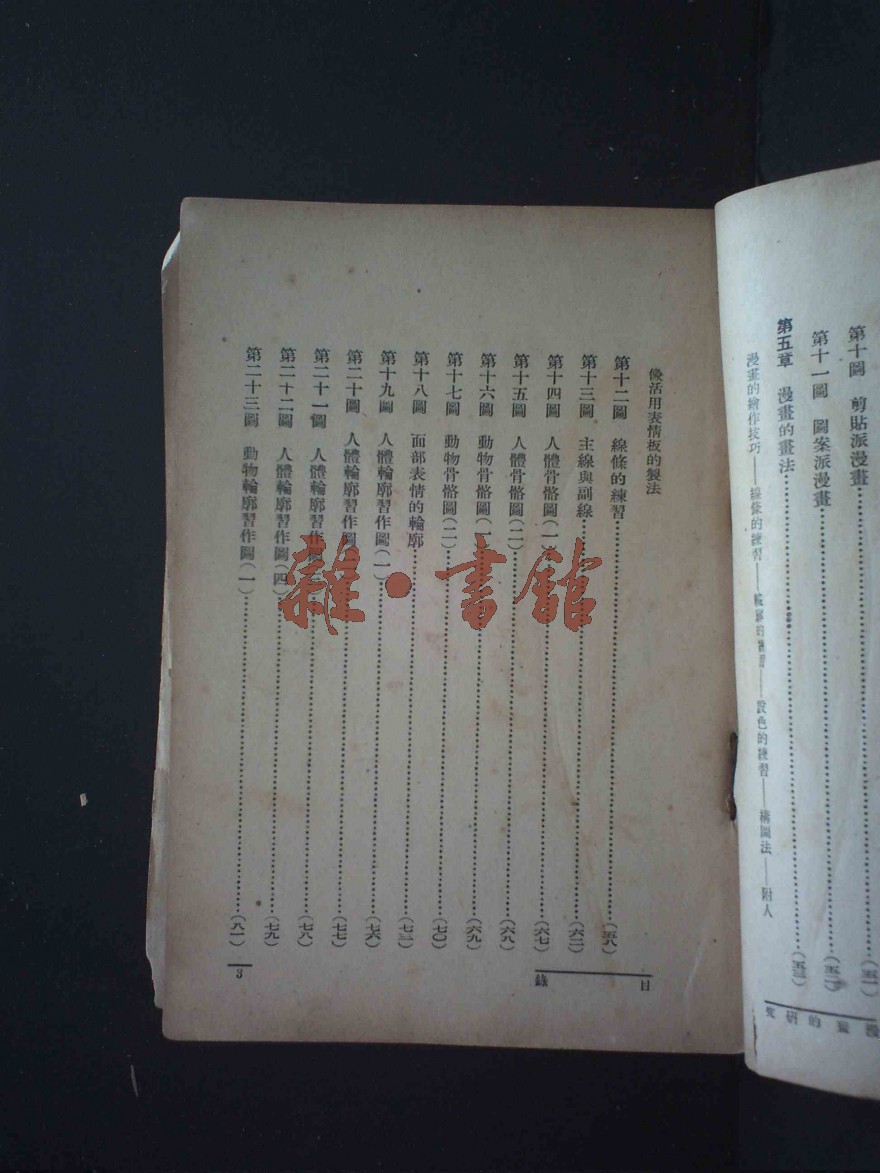 第十圖　剪貼派漫畫……(五一)
第十一圖　圖案派漫畫……(五二)
第五章　漫畫的畫法……(五三)
漫畫的繪作技巧——線條的練習——的練習——設色的練習——構圖法——附人
漫畫的研究
像活用表情板的製法
第十二圖　線條的練習……(五八)
第十三圖　主線與副線……(六二)
第十四圖　人體骨骼圖(一)……(六七)
第十五圖　人體骨骼圖(二)……(六八)
第十六圖　動物骨骼圖(一)……(六九)
第十七圖　動物骨骼圖(二)……(七〇)
第十八圖　面部表情的輪廓……(七三)
第十九圖　人體輪廓習作圖(一)……(七六)
第二十圖　人體輪廓習作圖……(七七)
第二十一圖　人體輪廓習作圖……(七八)
第二十二圖　人體輪廓習作圖(四)……(七九)
第二十三圖　動物輪廓習作圖(一)……(八一)
目錄
3
雜·書館